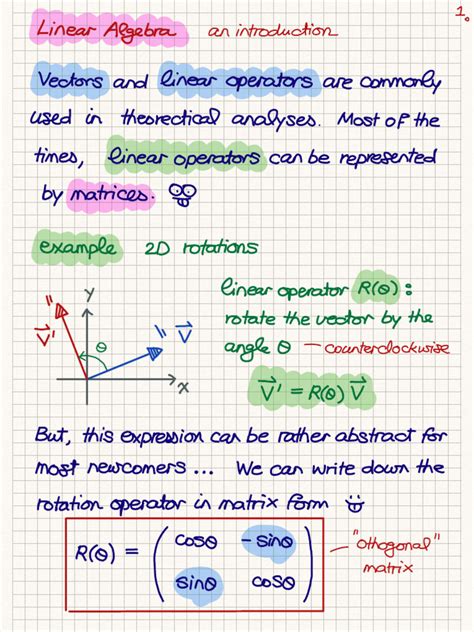 1.
Linear Algebra an introduction
Vectors and linear operators are commonly
used in theorectical analyses. Most of the
times, linear operators can be represented
by matrices.
example 2D rotations
linear operator R(θ):
rotate the vector by the
angle θ — counterclockwise
y
V⃗'
θ
V⃗
x
V⃗' = R(θ) V⃗
But, this expression can be rather abstract for
most newcomers ... We can write down the
rotation operator in matrix form
R(θ) = ( cosθ -sinθ
sinθ cosθ )
"othogonal"
matrix